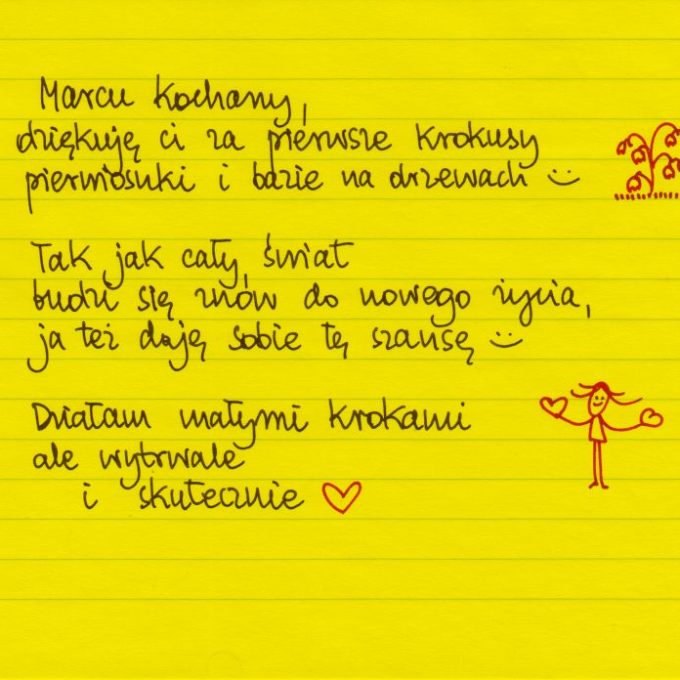 Marcu kochany,
dziękuję ci za pierwsze krokusy
pierwiosnki i bazie na drzewach :)
Tak jak cały świat
budzi się znów do nowego życia,
ja też daję sobie tę szansę :)
Działam małymi krokami
ale wytrwale
i skutecznie ♡